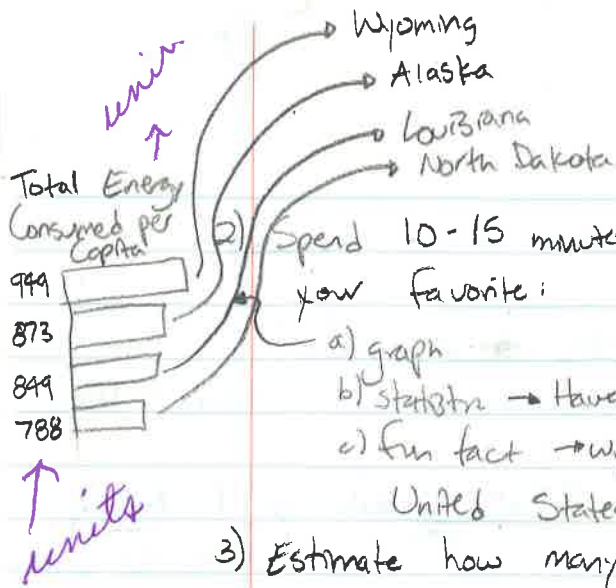 Wyoming
Alaska
Louisiana
North Dakota
unit
Total Energy
Consumed per
Capita
949
873
849
788
units
2) Spend 10-15 minutes
your favorite:
a) graph
b) statistic → Have
c) fun fact →
United States
3) Estimate how many